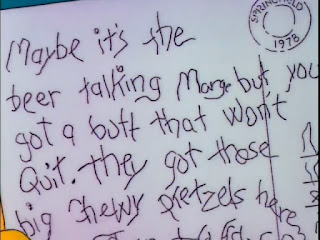 SPRINGFIELD
1978
Maybe it's the
beer talking Marge but you
got a butt that won't
Quit. they got those
big chewy pretzels here